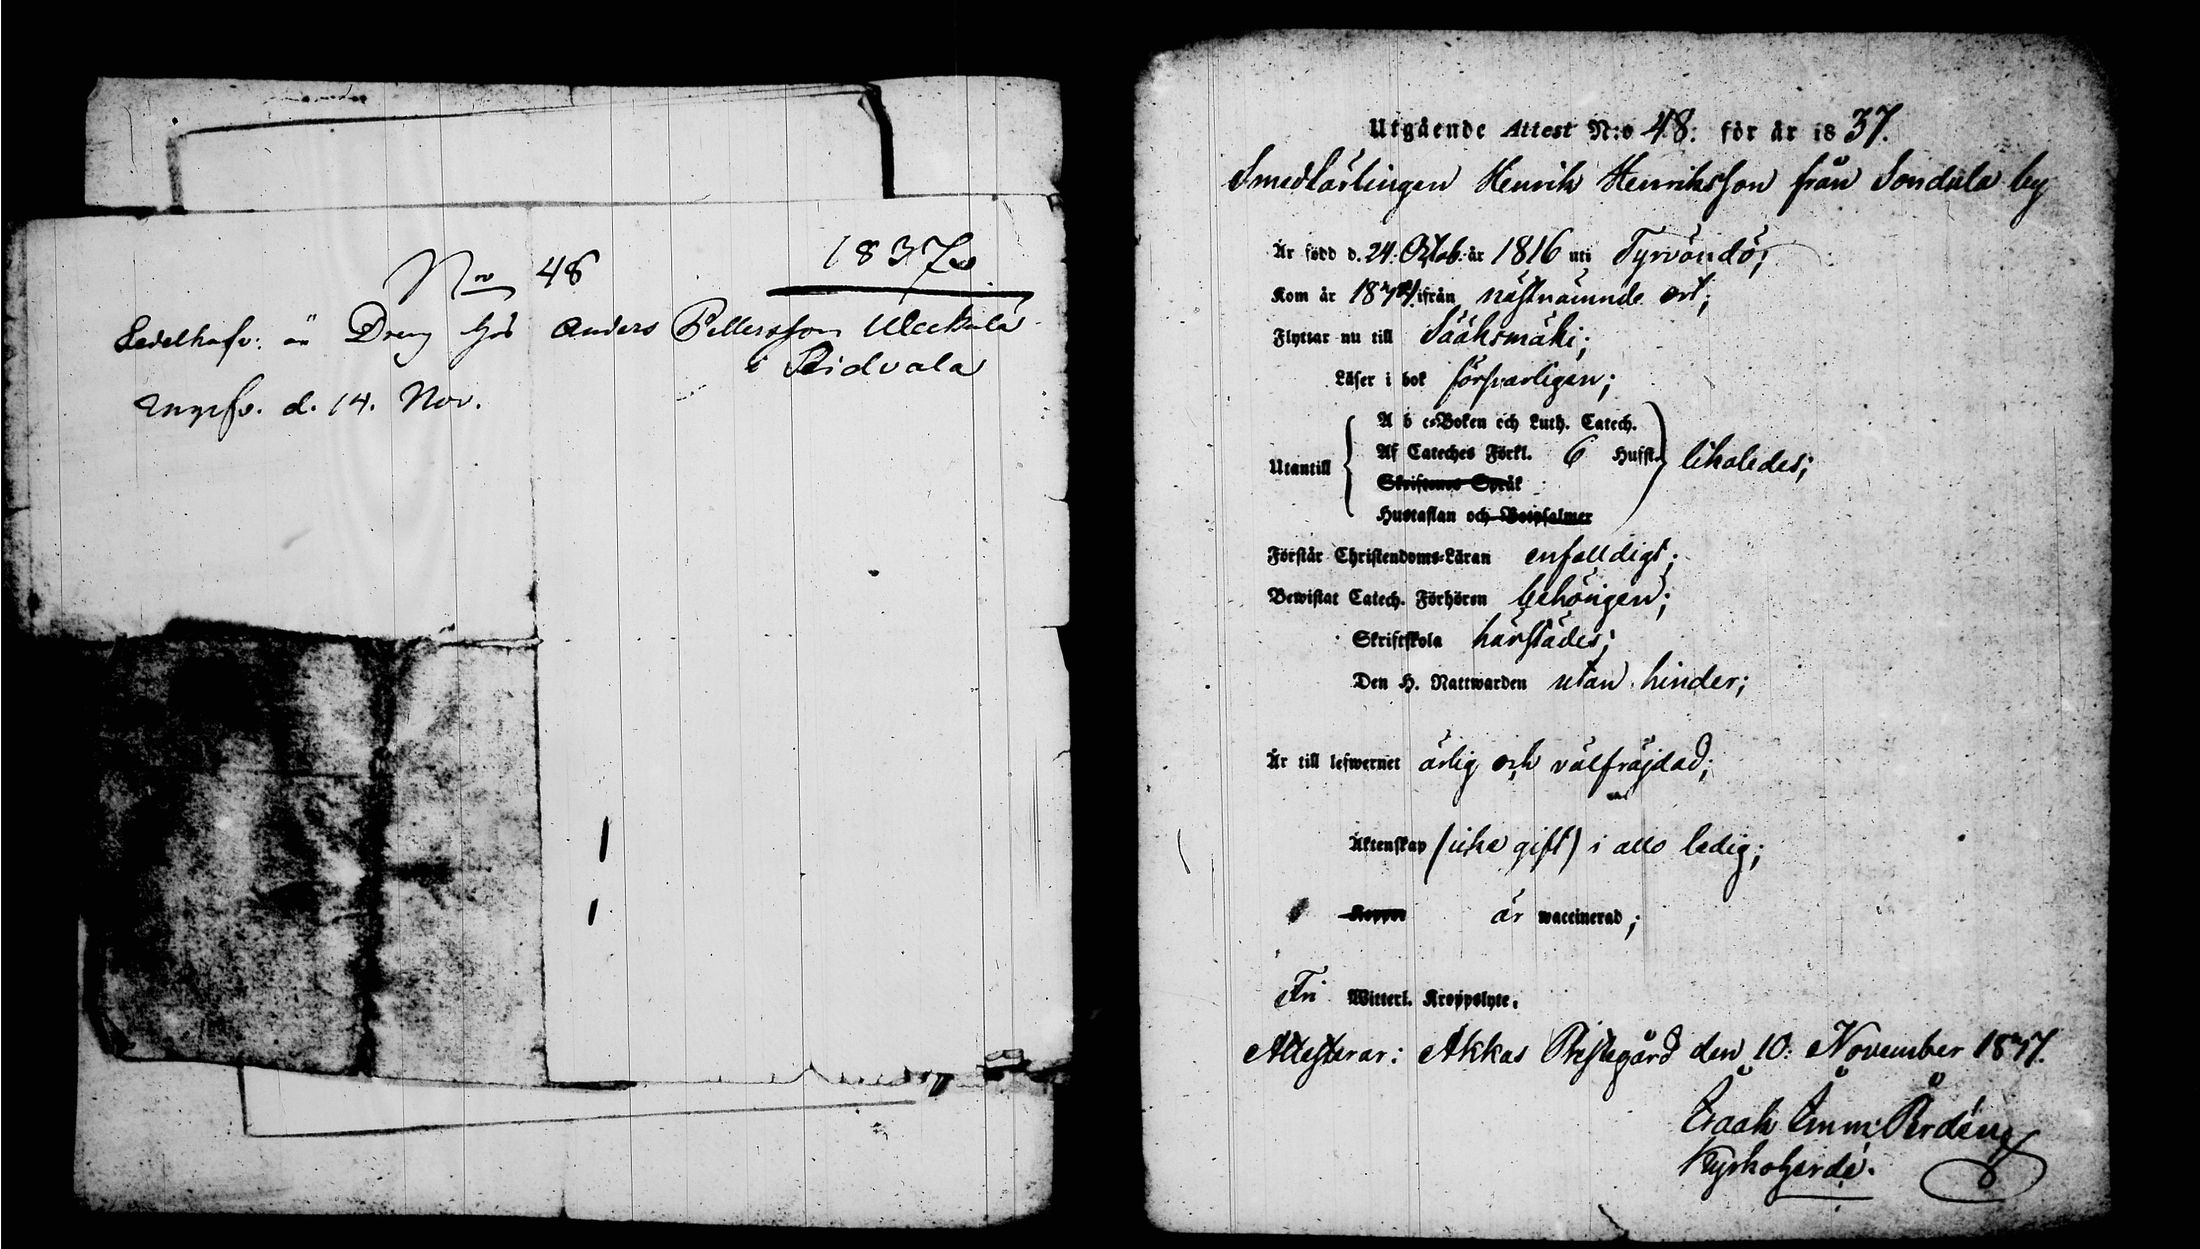 No 48 1837
Sedelhafv. är Dreng hos Anders Pettersson
i Ridvala
d. 14. Nov.
Utgående Attest N:o 48: för år 1837.
Smedlärlingen Henrik Henriksson från Sondala by
Är född d. 24. Octob. år 1816 uti Tyrvändö;
Kom år ifrån nästnämnde ort;
Flyttar nu till Sääksmäki;
Läser i bok försvarligen;
A b c-Boken och Luth. Catech.
Utantill Af Cateches Förkl. 6 Hufst. likaledes;
Skriftenes Språk
Hustaflan och Botpsalmer
Förstår Christendoms-Läran enfalldigt;
Bewistat Catech. Förhören behörigen;
Skriftskola härstädes;
Den H. Nattwarden utan hinder;
Är till lefwernet ärlig och välfräjdad;
Äktenskap (icke gift) i allo ledig;
Koppor är waccinerad;
Fri Witterl. Kroppslyte.
Attesterar: Akkas Prestegård den 10: November 1837.
Kyrkoherde.